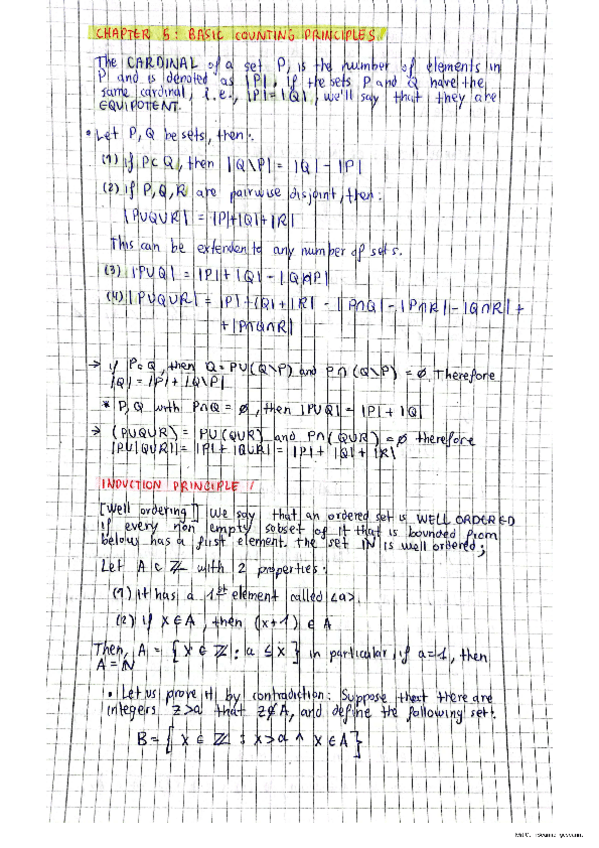 CHAPTER 5: BASIC COUNTING PRINCIPLES
The CARDINAL of a set P, is the number of elements in
P and is denoted as |P|. If the sets P and Q have the
same cardinal, i.e., |P|=|Q|, we'll say that they are
EQUIPOTENT.
• Let P, Q be sets, then:
(1) if P⊂Q, then |Q\P| = |Q| - |P|
(2) if P, Q, R are pairwise disjoint, then:
|P∪Q∪R| = |P|+|Q|+|R|
This can be extenden to any number of sets.
(3) |P∪Q| = |P|+|Q| - |Q∩P|
(4) |P∪Q∪R| = |P|+|Q|+|R| - |P∩Q| - |P∩R| - |Q∩R| +
+ |P∩Q∩R|
→ if P⊂Q, then Q = P∪(Q\P) and P∩(Q\P) = ∅. Therefore
|Q| = |P| + |Q\P|
* P, Q with P∩Q = ∅, then |P∪Q| = |P| + |Q|
→ (P∪Q∪R) = P∪(Q∪R) and P∩(Q∪R) = ∅ therefore
|P∪(Q∪R)| = |P| + |Q∪R| = |P| + |Q| + |R|
INDUCTION PRINCIPLE
[Well ordering] We say that an ordered set is WELL ORDERED
if every non empty subset of it that is bounded from
below has a first element. the set ℕ is well ordered;
Let A ⊂ ℤ with 2 properties:
(1) it has a 1st element called <a>.
(2) if x∈A, then (x+1) ∈ A
Then, A = {x ∈ ℤ : a ≤ x} in particular, if a=1, then
A = ℕ
• Let us prove it by contradiction: Suppose that there are
integers z>a that z∉A, and define the following set:
B = {x ∈ ℤ : x>a ∧ x∈A}